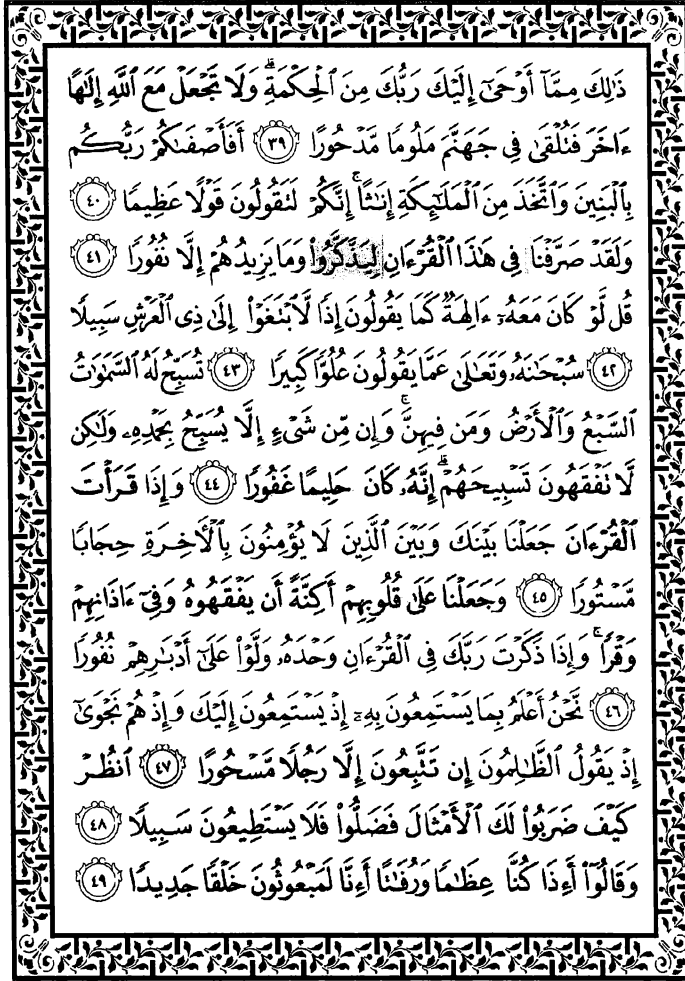 ذَٰلِكَ مِمَّآ أَوْحَىٰٓ إِلَيْكَ رَبُّكَ مِنَ ٱلْحِكْمَةِۗ وَلَا تَجْعَلْ مَعَ ٱللَّهِ إِلَٰهًا
ءَاخَرَ فَتُلْقَىٰ فِى جَهَنَّمَ مَلُومًا مَّدْحُورًا ٣٩ أَفَأَصْفَىٰكُمْ رَبُّكُم
بِٱلْبَنِينَ وَٱتَّخَذَ مِنَ ٱلْمَلَٰٓئِكَةِ إِنَٰثًاۚ إِنَّكُمْ لَتَقُولُونَ قَوْلًا عَظِيمًا ٤٠
وَلَقَدْ صَرَّفْنَا فِى هَٰذَا ٱلْقُرْءَانِ لِيَذَّكَّرُوا۟ وَمَا يَزِيدُهُمْ إِلَّا نُفُورًا ٤١
قُل لَّوْ كَانَ مَعَهُۥٓ ءَالِهَةٌ كَمَا يَقُولُونَ إِذًا لَّٱبْتَغَوْا۟ إِلَىٰ ذِى ٱلْعَرْشِ سَبِيلًا
٤٢ سُبْحَٰنَهُۥ وَتَعَٰلَىٰ عَمَّا يَقُولُونَ عُلُوًّا كَبِيرًا ٤٣ تُسَبِّحُ لَهُ ٱلسَّمَٰوَٰتُ
ٱلسَّبْعُ وَٱلْأَرْضُ وَمَن فِيهِنَّۚ وَإِن مِّن شَىْءٍ إِلَّا يُسَبِّحُ بِحَمْدِهِۦ وَلَٰكِن
لَّا تَفْقَهُونَ تَسْبِيحَهُمْۗ إِنَّهُۥ كَانَ حَلِيمًا غَفُورًا ٤٤ وَإِذَا قَرَأْتَ
ٱلْقُرْءَانَ جَعَلْنَا بَيْنَكَ وَبَيْنَ ٱلَّذِينَ لَا يُؤْمِنُونَ بِٱلْأَخِرَةِ حِجَابًا
مَّسْتُورًا ٤٥ وَجَعَلْنَا عَلَىٰ قُلُوبِهِمْ أَكِنَّةً أَن يَفْقَهُوهُ وَفِىٓ ءَاذَانِهِمْ
وَقْرًاۚ وَإِذَا ذَكَرْتَ رَبَّكَ فِى ٱلْقُرْءَانِ وَحْدَهُۥ وَلَّوْا۟ عَلَىٰٓ أَدْبَٰرِهِمْ نُفُورًا
٤٦ نَّحْنُ أَعْلَمُ بِمَا يَسْتَمِعُونَ بِهِۦٓ إِذْ يَسْتَمِعُونَ إِلَيْكَ وَإِذْ هُمْ نَجْوَىٰٓ
إِذْ يَقُولُ ٱلظَّٰلِمُونَ إِن تَتَّبِعُونَ إِلَّا رَجُلًا مَّسْحُورًا ٤٧ ٱنظُرْ
كَيْفَ ضَرَبُوا۟ لَكَ ٱلْأَمْثَالَ فَضَلُّوا۟ فَلَا يَسْتَطِيعُونَ سَبِيلًا ٤٨
وَقَالُوٓا۟ أَءِذَا كُنَّا عِظَٰمًا وَرُفَٰتًا أَءِنَّا لَمَبْعُوثُونَ خَلْقًا جَدِيدًا ٤٩